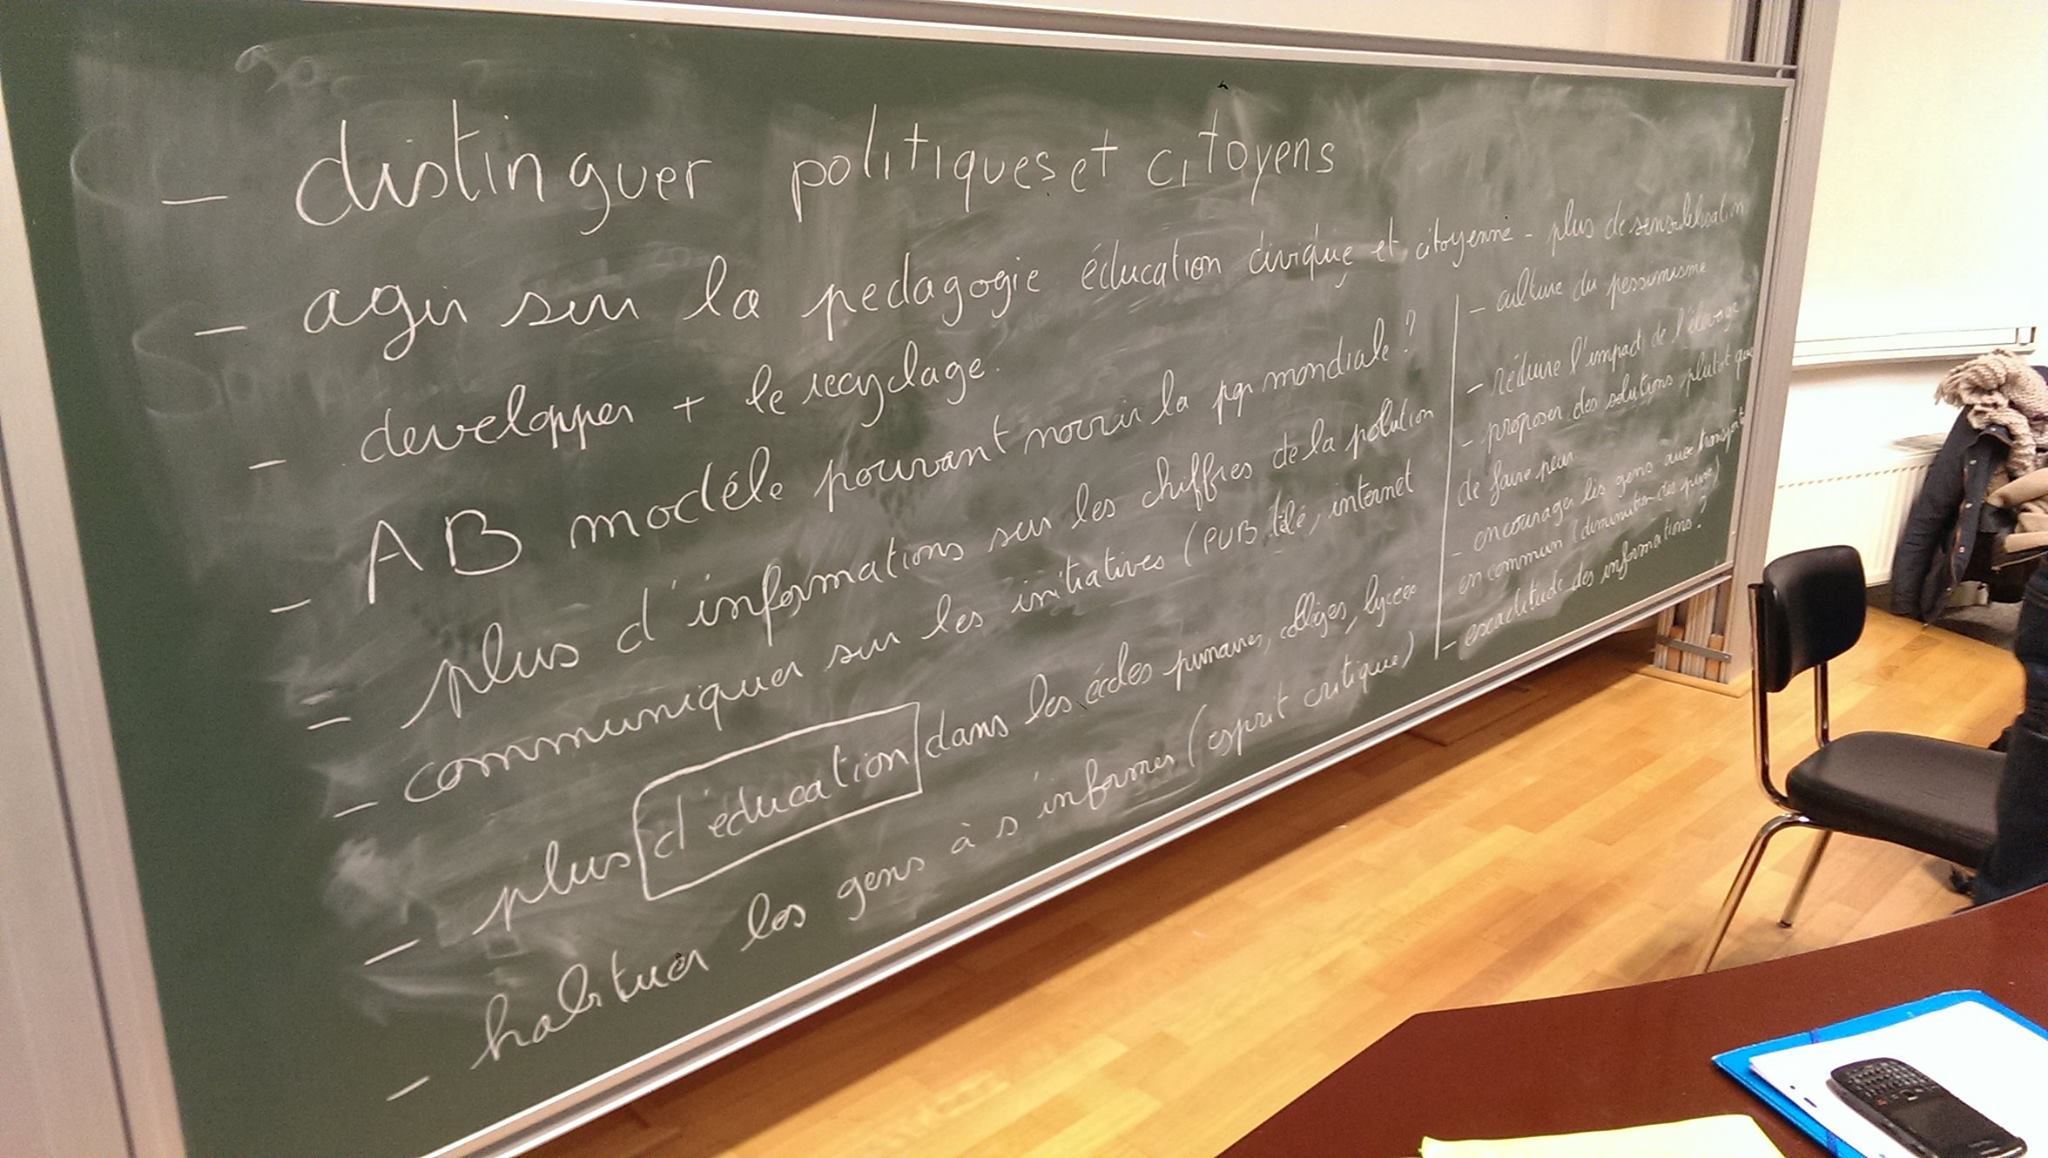 - distinguer politiques et citoyens
- agir sur la pedagogie éducation civique et citoyenne
- developper + le recyclage.
- AB modéle pouvant nourrir la pop mondiale ?
= plus d'informations sur les chiffres de la polution
- communiquer sur les initiatives (PUB télé, internet
- plus d'éducation dans les écoles primaires, colléges, lycée
- habituer les gens à s'informer (esprit critique)
- plus de sensibilisation
- culture du pessimisme
- réduire l'impact de l'élevage
- proposer des solutions plutôt que
de faire peur
- encourager les gens aux transport
en commun (diminution des prix)
- exactitude des informations ?